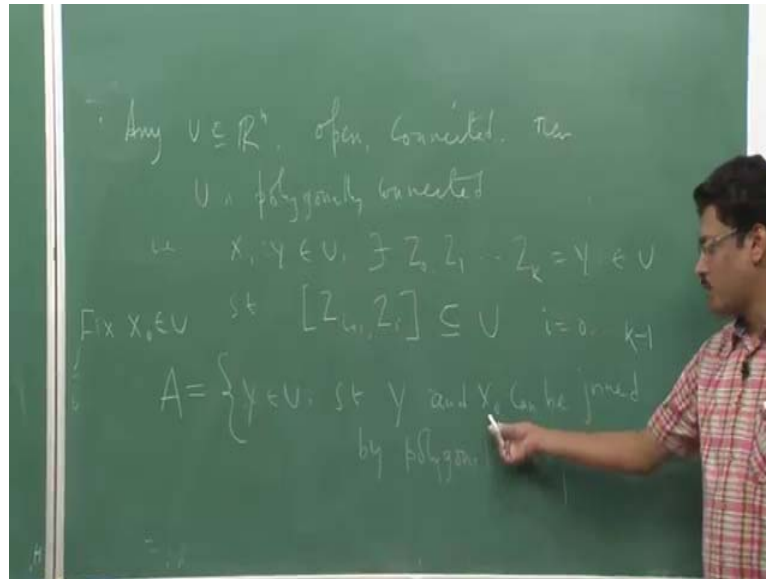 Any U ⊆ ℝⁿ. open, connected. Then
U is polygonally connected
ie X, Y ∈ U, ∃ Z₀ Z₁ ... Z_k = Y ∈ U
Fix X₀ ∈ U st [Z_{i+1}, Z_i] ⊆ U i=0... k-1
A = { Y ∈ U: st Y and X₀ can be joined
by polygon